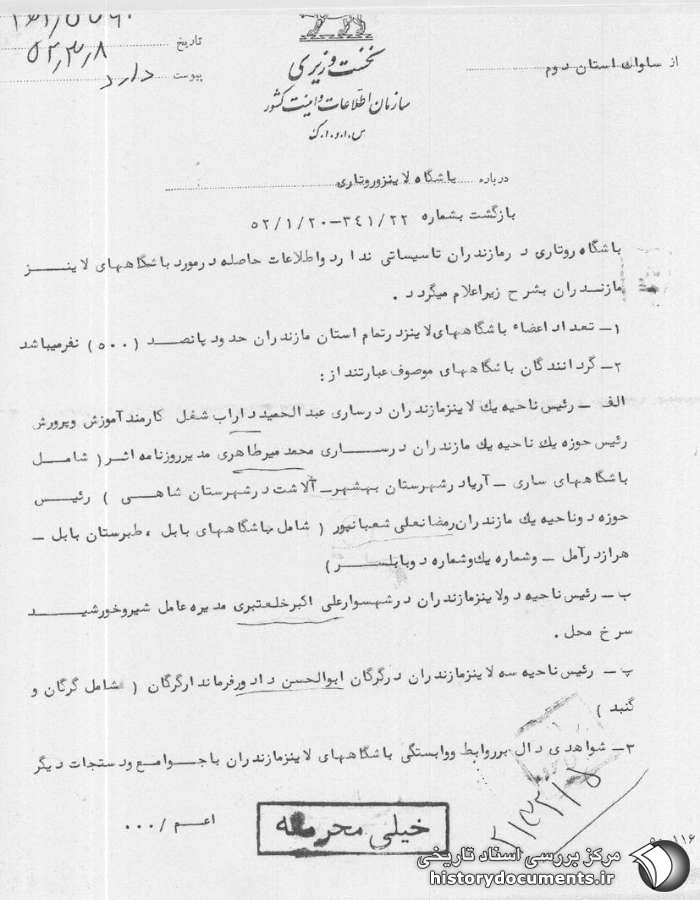 تاریخ ۵۲٫۳٫۸
پیوست دارد
نخست وزیری
سازمان اطلاعات و امنیت کشور
س.ا.و.ا.ک
از ساواك استان دوم
درباره باشگاه لاینزوروتاری
بازگشت بشماره ۳٤۱/۲۲-۵۲/۱/۲۰
باشگاه روتاری در مازندران تاسیساتی ندارد واطلاعات حاصله درمورد باشگاههای لاینـــز
مازندران بشرح زیراعلام میگردد .
۱- تعداد اعضاء باشگاههای لاینزدرتمام استان مازندران حدود پانصد (۵۰۰) نفرمیباشد
۲- گردانندگان باشگاههای موصوف عبارتند از :
الف - رئیس ناحیه یك لاینزمازندران درساری عبدالحمید داراب شغل کارمند آموزش وپرورش
رئیس حوزه یك ناحیه یك مازندران درســـاری محمد میرطاهری مدیرروزنامه اثر ( شامــل
باشگاههای ساری - آریاد رشهرستان بهشهر - آلاشت درشهرستان شاهــی ) رئیــس
حوزه دوناحیه یك مازندران رمضانعلی شعبانپور ( شامل باشگاههای بابل ، طبرستان بابل -
هرازدرآمل - وشماره یك وشماره دوبابلســـر )
ب - رئیس ناحیه دولاینزمازندران درشهسوارعلی اکبرخلعتبری مدیره عامل شیروخورشیـــد
سرخ محل .
پ - رئیس ناحیه سه لاینزمازندران درگرگان ابوالحسن دادورفرماندارگرگان ( شامل گرگان و
گنبد )
۳- شواهدی دال برروابط ووابستگی باشگاههای لاینزمازندران باجـــوامع ودستجات دیگر
اعــم /۰۰۰
خیلی محرمانه
مرکز بررسی اسناد تاریخی
historydocuments.ir